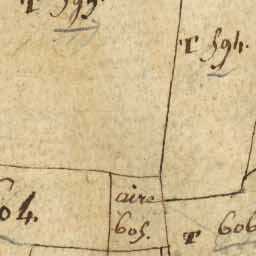 T 595.
T 594.
604.
aire
605.
T 606